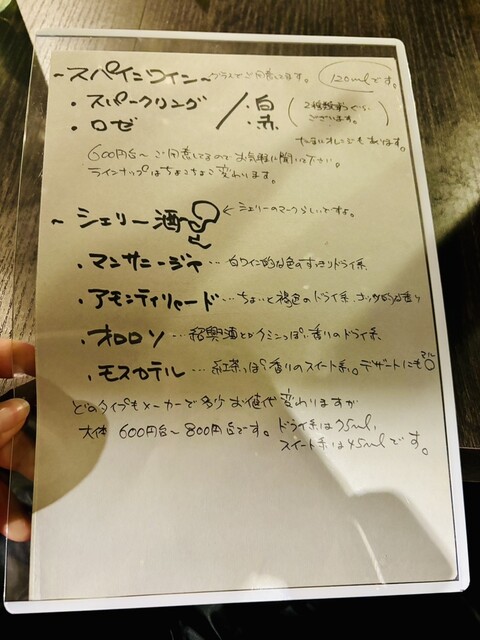 ~スパインワイン~ グラスでご用意してます。 120mlです。
・スパークリング / ・白 (2種類約ぐらいございます。)
・ロゼ ・赤
たまにオレンジもあります。
600円台~ご用意してるのでお気軽に聞いて下さい。
ラインナップはちょこちょこ変わります。
~シェリー酒 ←シェリーのマークらしいですよ。
・マンサニージャ…白ワイン的な色のすっきりドライ系
・アモンティリャード…ちょいと褐色のドライ系 ナッツ的な香り
・オロロソ…紹興酒とかクミンっぽい香りのドライ系
・モスカテル…紅茶っぽい香りのスイート系。デザートにも○ マル
どのタイプもメーカーで多少お値代変わりますが
大体600円台~800円台です。ドライ系は75ml、
スイート系は45mlです。